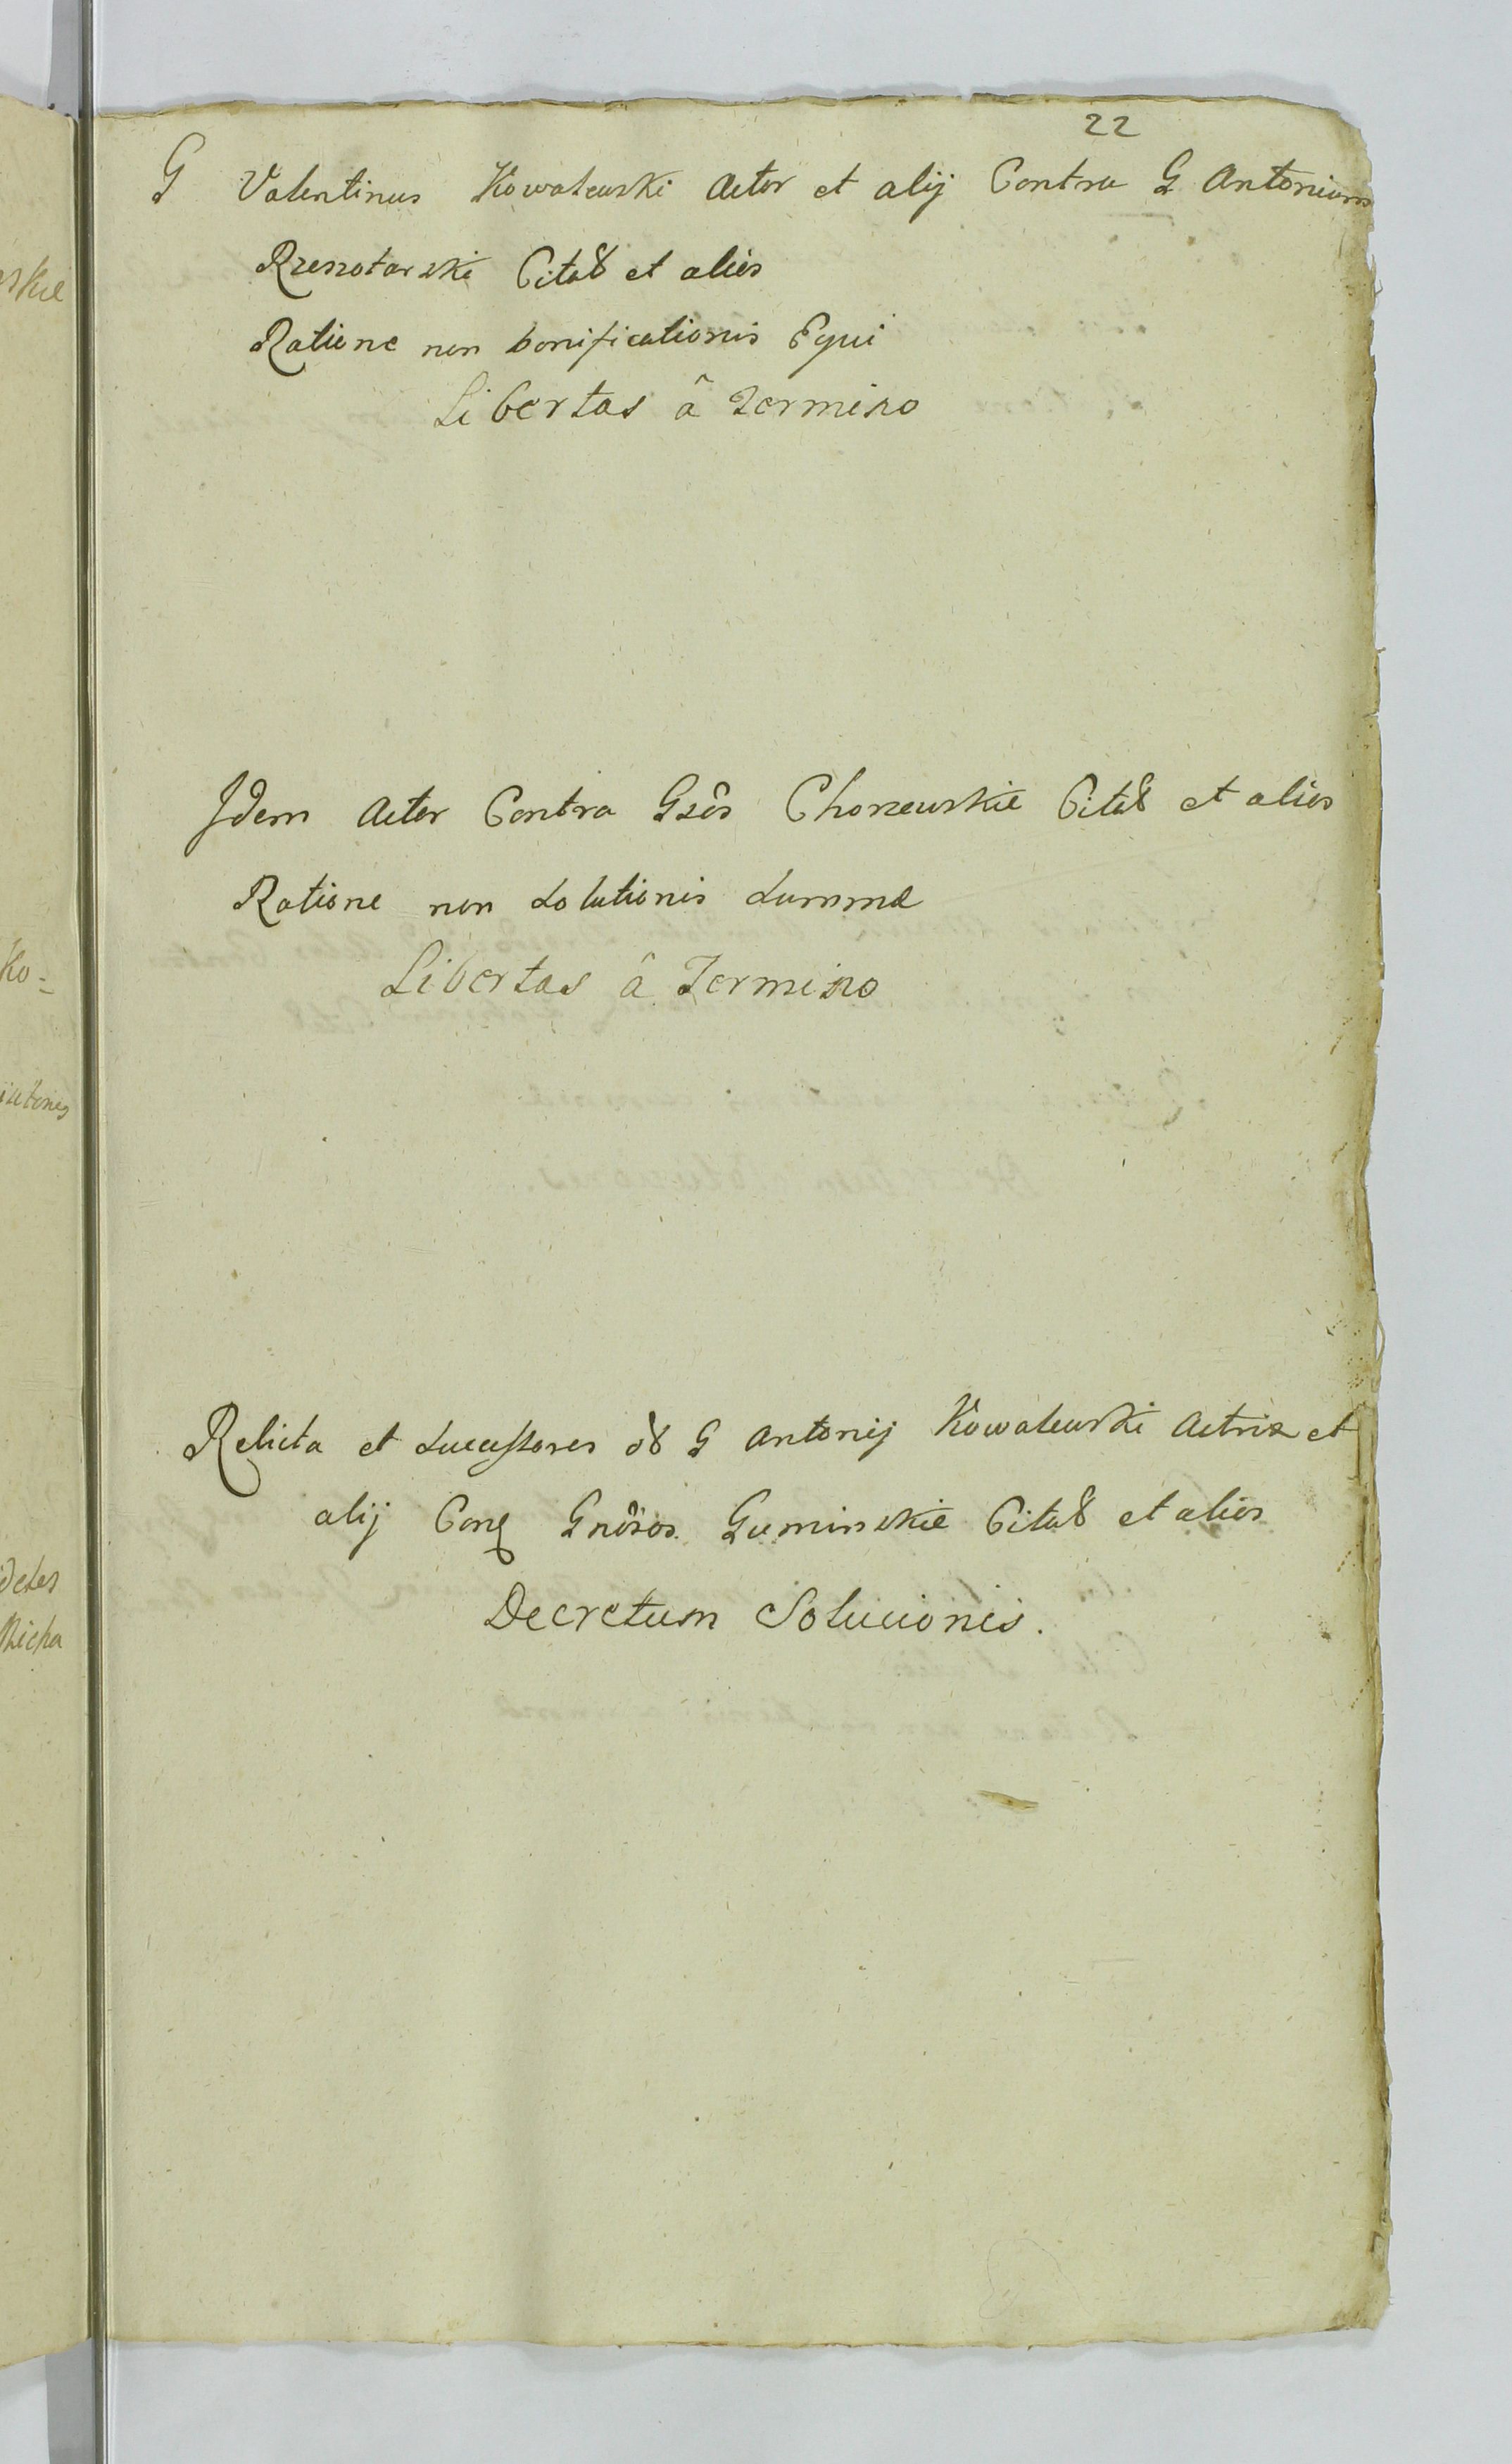 22
G Valentinus Kowalewski Actor et alij Contra G Antonium
Rzeszotarski Citat et alios
Ratione non bonificationis Equi
Libertas â Termino
Idem Actor Contra Gsôs Chorzewskie Citat et alios
Ratione non Solutionis Summæ
Libertas â Termino
Relicta et Successores G Antonij Kowalewski Actrix et
alij Gnôsos Guminskie Citat et alios
Decretum Solucionis.